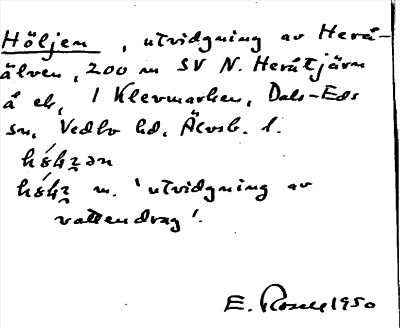 Höljen, utvidgning av Herå-
älven, 200 m SV N. Heråtjärn
å ek, 1 Klevmarken, Dals-Eds
sn, Vedbo hd, Älvsb. l.
m. 'utvidgning av
vattendrag'.
E. 1950